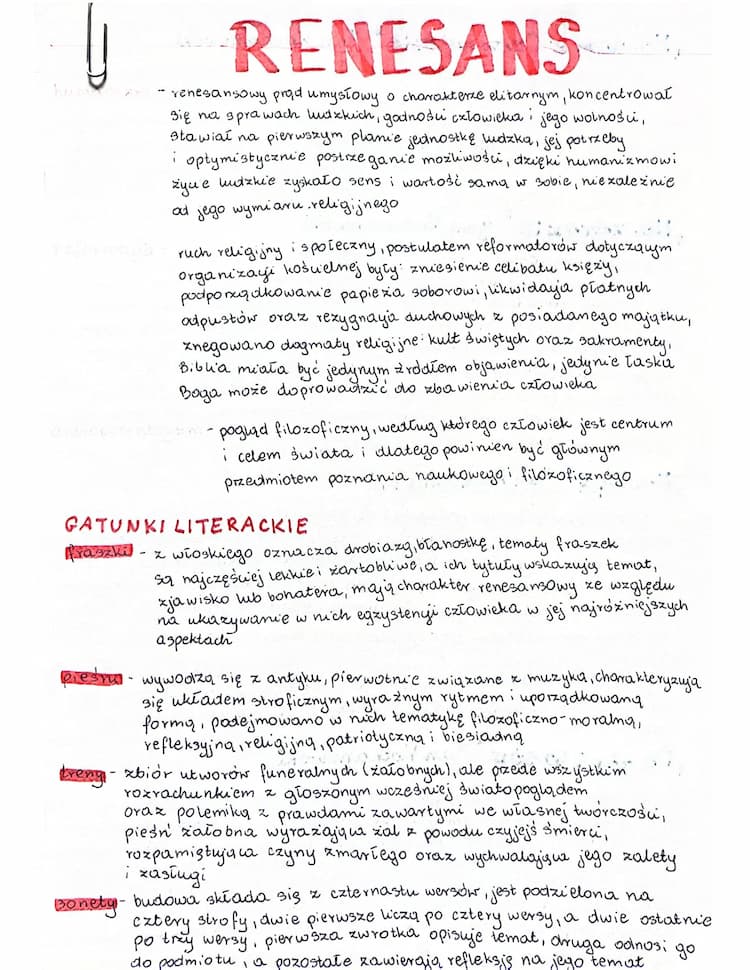 RENESANS
- renesansowy prąd umysłowy o charakterze elitarnym, koncentrował
się na sprawach ludzkich, godności człowieka i jego wolności,
stawiał na pierwszym planie jednostkę ludzką, jej potrzeby
i optymistycznie postrzeganie możliwości, dzięki humanizmowi
życie ludzkie zyskało sens i wartość samą w sobie, niezależnie
od jego wymiaru religijnego
ruch religijny i społeczny, postulatem reformatorów dotyczącym
organizacji kościelnej były: zniesienie celibatu księży,
podporządkowanie papieża soborowi, likwidacja płatnych
odpustów oraz rezygnacja duchowych z posiadanego majątku,
znegowano dogmaty religijne: kult świętych oraz sakramenty,
Biblia miała być jedynym źródłem objawienia, jedynie łaska
Boga może doprowadzić do zbawienia człowieka
- pogląd filozoficzny, według którego człowiek jest centrum
i celem świata i dlatego powinien być głównym
przedmiotem poznania naukowego i filozoficznego
GATUNKI LITERACKIE
fraszki - z włoskiego oznacza drobiazg, błahostkę, tematy fraszek
są najczęściej lekkie i żartobliwe, a ich tytuły wskazują temat,
zjawisko lub bohatera, mają charakter renesansowy ze względu
na ukazywanie w nich egzystencji człowieka w jej najróżniejszych
aspektach
pieśni - wywodzą się z antyku, pierwotnie związane z muzyką, charakteryzują
się układem stroficznym, wyraźnym rytmem i uporządkowaną
formą, podejmowano w nich tematykę filozoficzno-moralną,
refleksyjną, religijną, patriotyczną i biesiadną
treny - zbiór utworów funeralnych (żałobnych), ale przede wszystkim
rozrachunkiem z głoszonym wcześniej światopoglądem
oraz polemiką z prawdami zawartymi we własnej twórczości,
pieśń żałobna wyrażająca żal z powodu czyjejś śmierci,
rozpamiętująca czyny zmarłego oraz wychwalająca jego zalety
i zasługi
sonety - budowa składa się z czternastu wersów, jest podzielona na
cztery strofy, dwie pierwsze liczą po cztery wersy, a dwie ostatnie
po trzy wersy, pierwsza zwrotka opisuje temat, druga odnosi go
do podmiotu, a pozostałe zawierają refleksję na jego temat